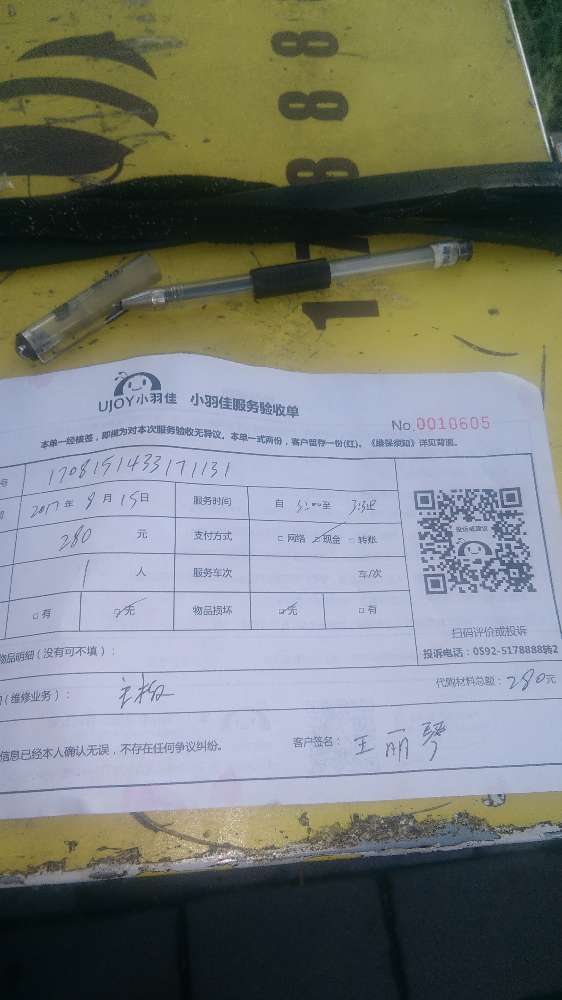 17888
UJOY小羽佳 小羽佳服务验收单
No 0010605
本单一经核签，即视为对本次服务验收无异议。本单一式两份，客户留存一份(红)。《维保须知》详见背面。
号 1708151433171131
2017年8月15日 服务时间 自 3:00至
280 元 支付方式 □网络 现金 □转账
1 人 服务车次 车/次
□有 无 物品损坏 无 □有
物品明细（没有可不填）：
（维修业务）： 主板
代购材料总额：280元
信息已经本人确认无误，不存在任何争议纠纷。
客户签名： 王丽琴
投诉或建议
扫码评价或投诉
投诉电话：0592-5178888转2